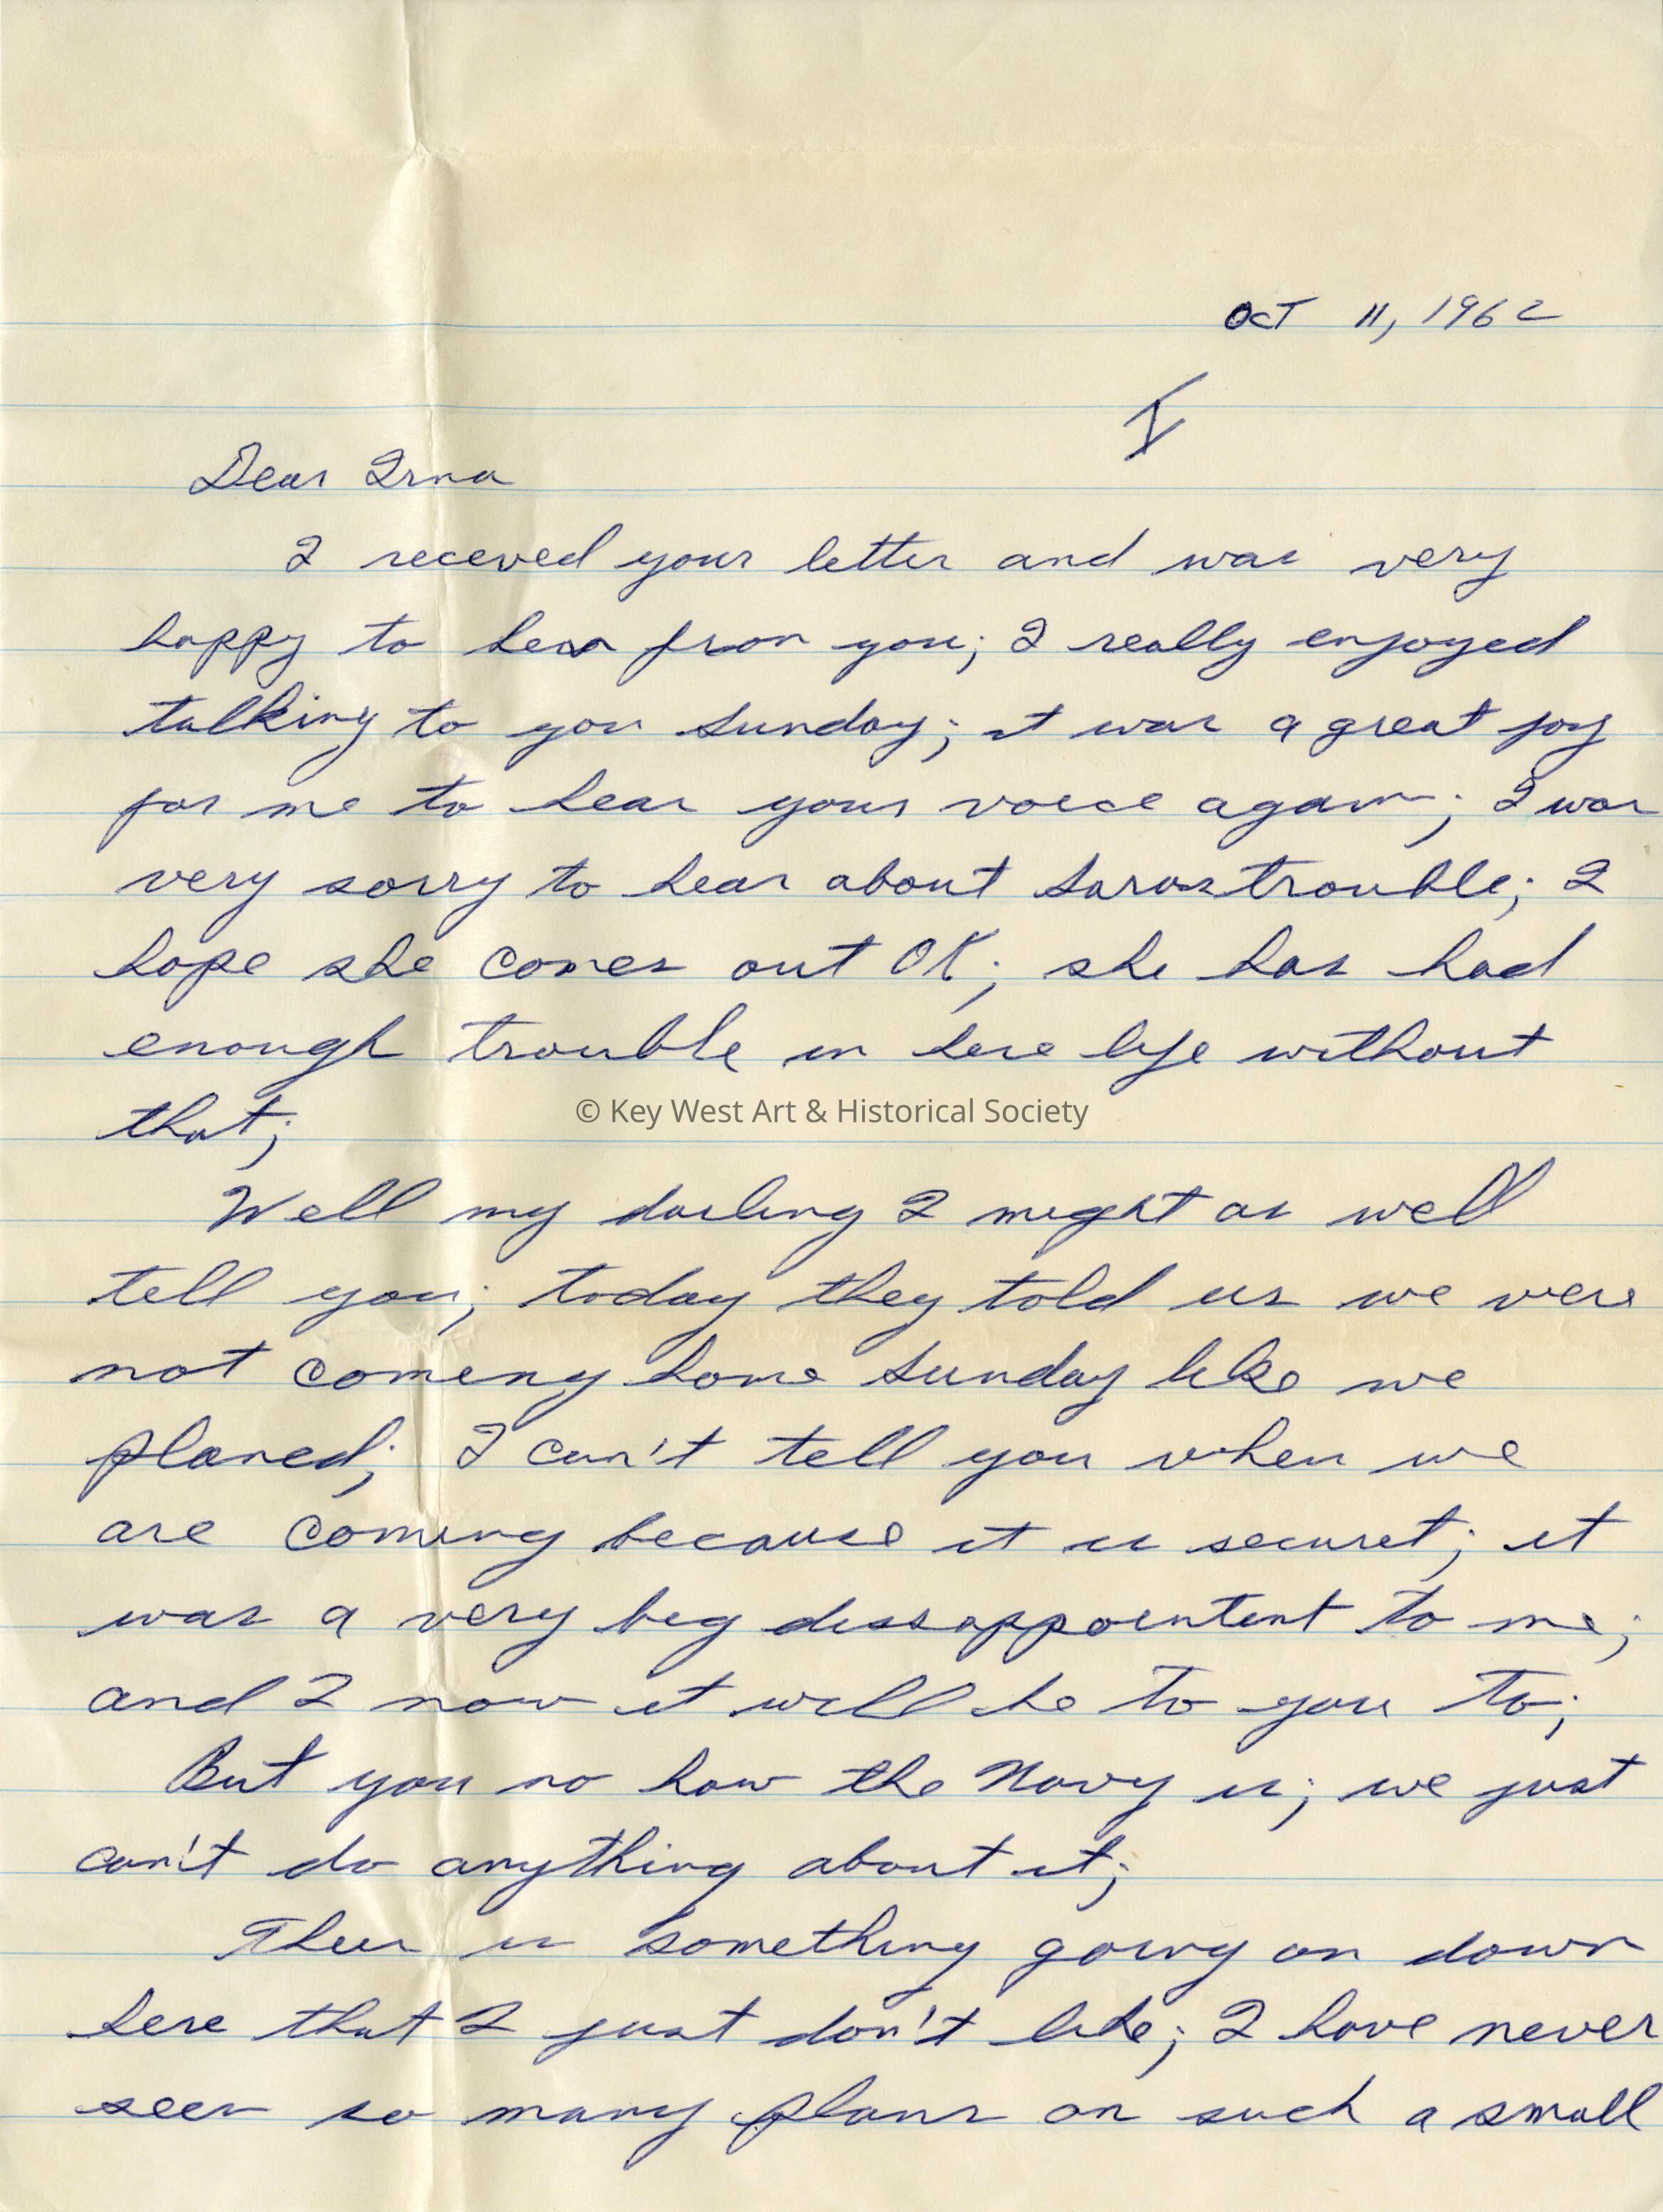 OCT 11, 1962
I
Dear Irma
I receved your letter and was very
happy to hear from you; I really enjoyed
talking to you Sunday; it was a great joy
for me to hear your voice again; I was
very sorry to hear about Saras trouble; I
hope she comes out OK; she has had
enough trouble in here life without
that;
© Key West Art & Historical Society
Well my darling I might as well
tell you; today they told us we were
not coming home Sunday like we
planed; I can't tell you when we
are coming because it is secret; it
was a very big dissappointent to me;
and I now it will be to you to;
But you no how the Navy is; we just
can't do anything about it;
Ther is something going on down
here that I just don't like; I have never
seen so many plans on such a small